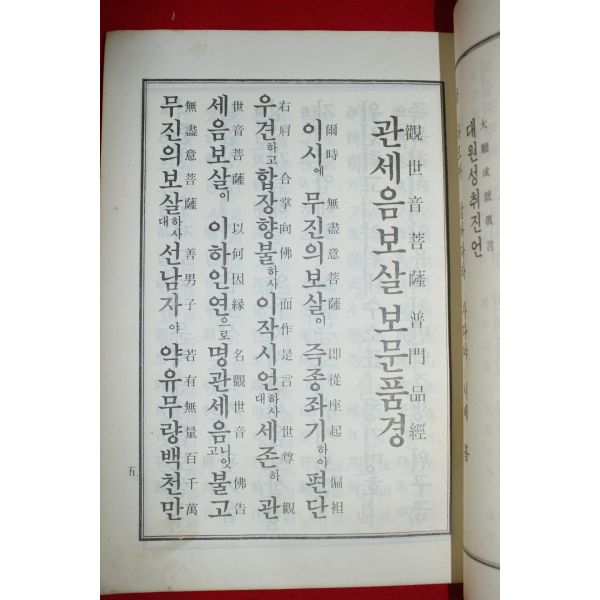 大願成就眞言
대원성취진언
觀世音菩薩普門品經
관세음보살보문품경
爾時 無盡意菩薩 即從座起 偏袒
이시에 무진의보살이 즉종좌기하야 편단
右肩 合掌向佛 而作是言 世尊 觀
우견하고 합장향불하사 이작시언하사대 세존하 관
世音菩薩 以何因緣 名觀世音 佛告
세음보살이 이하인연으로 명관세음이닛고 불고
無盡意菩薩 善男子 若有無量百千萬
무진의보살하사대 선남자야 약유무량백천만
五